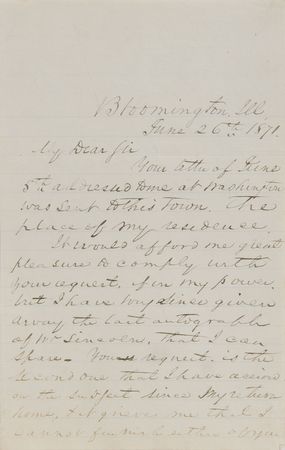 Bloomington, Ill,
June 26th 1871.
My Dear Sir
Your letter of June
5th addressed to me at Washington
was sent to this Town. The
place of my residence.
It would afford me great
pleasure to comply with
your request, if in my power,
but I have long since given
away the last autograph
of Mr Lincoln, that I can
spare - Your request, is the
second one that I have
on the subject since my return
home, & it grieves me that I
cannot furnish either of you